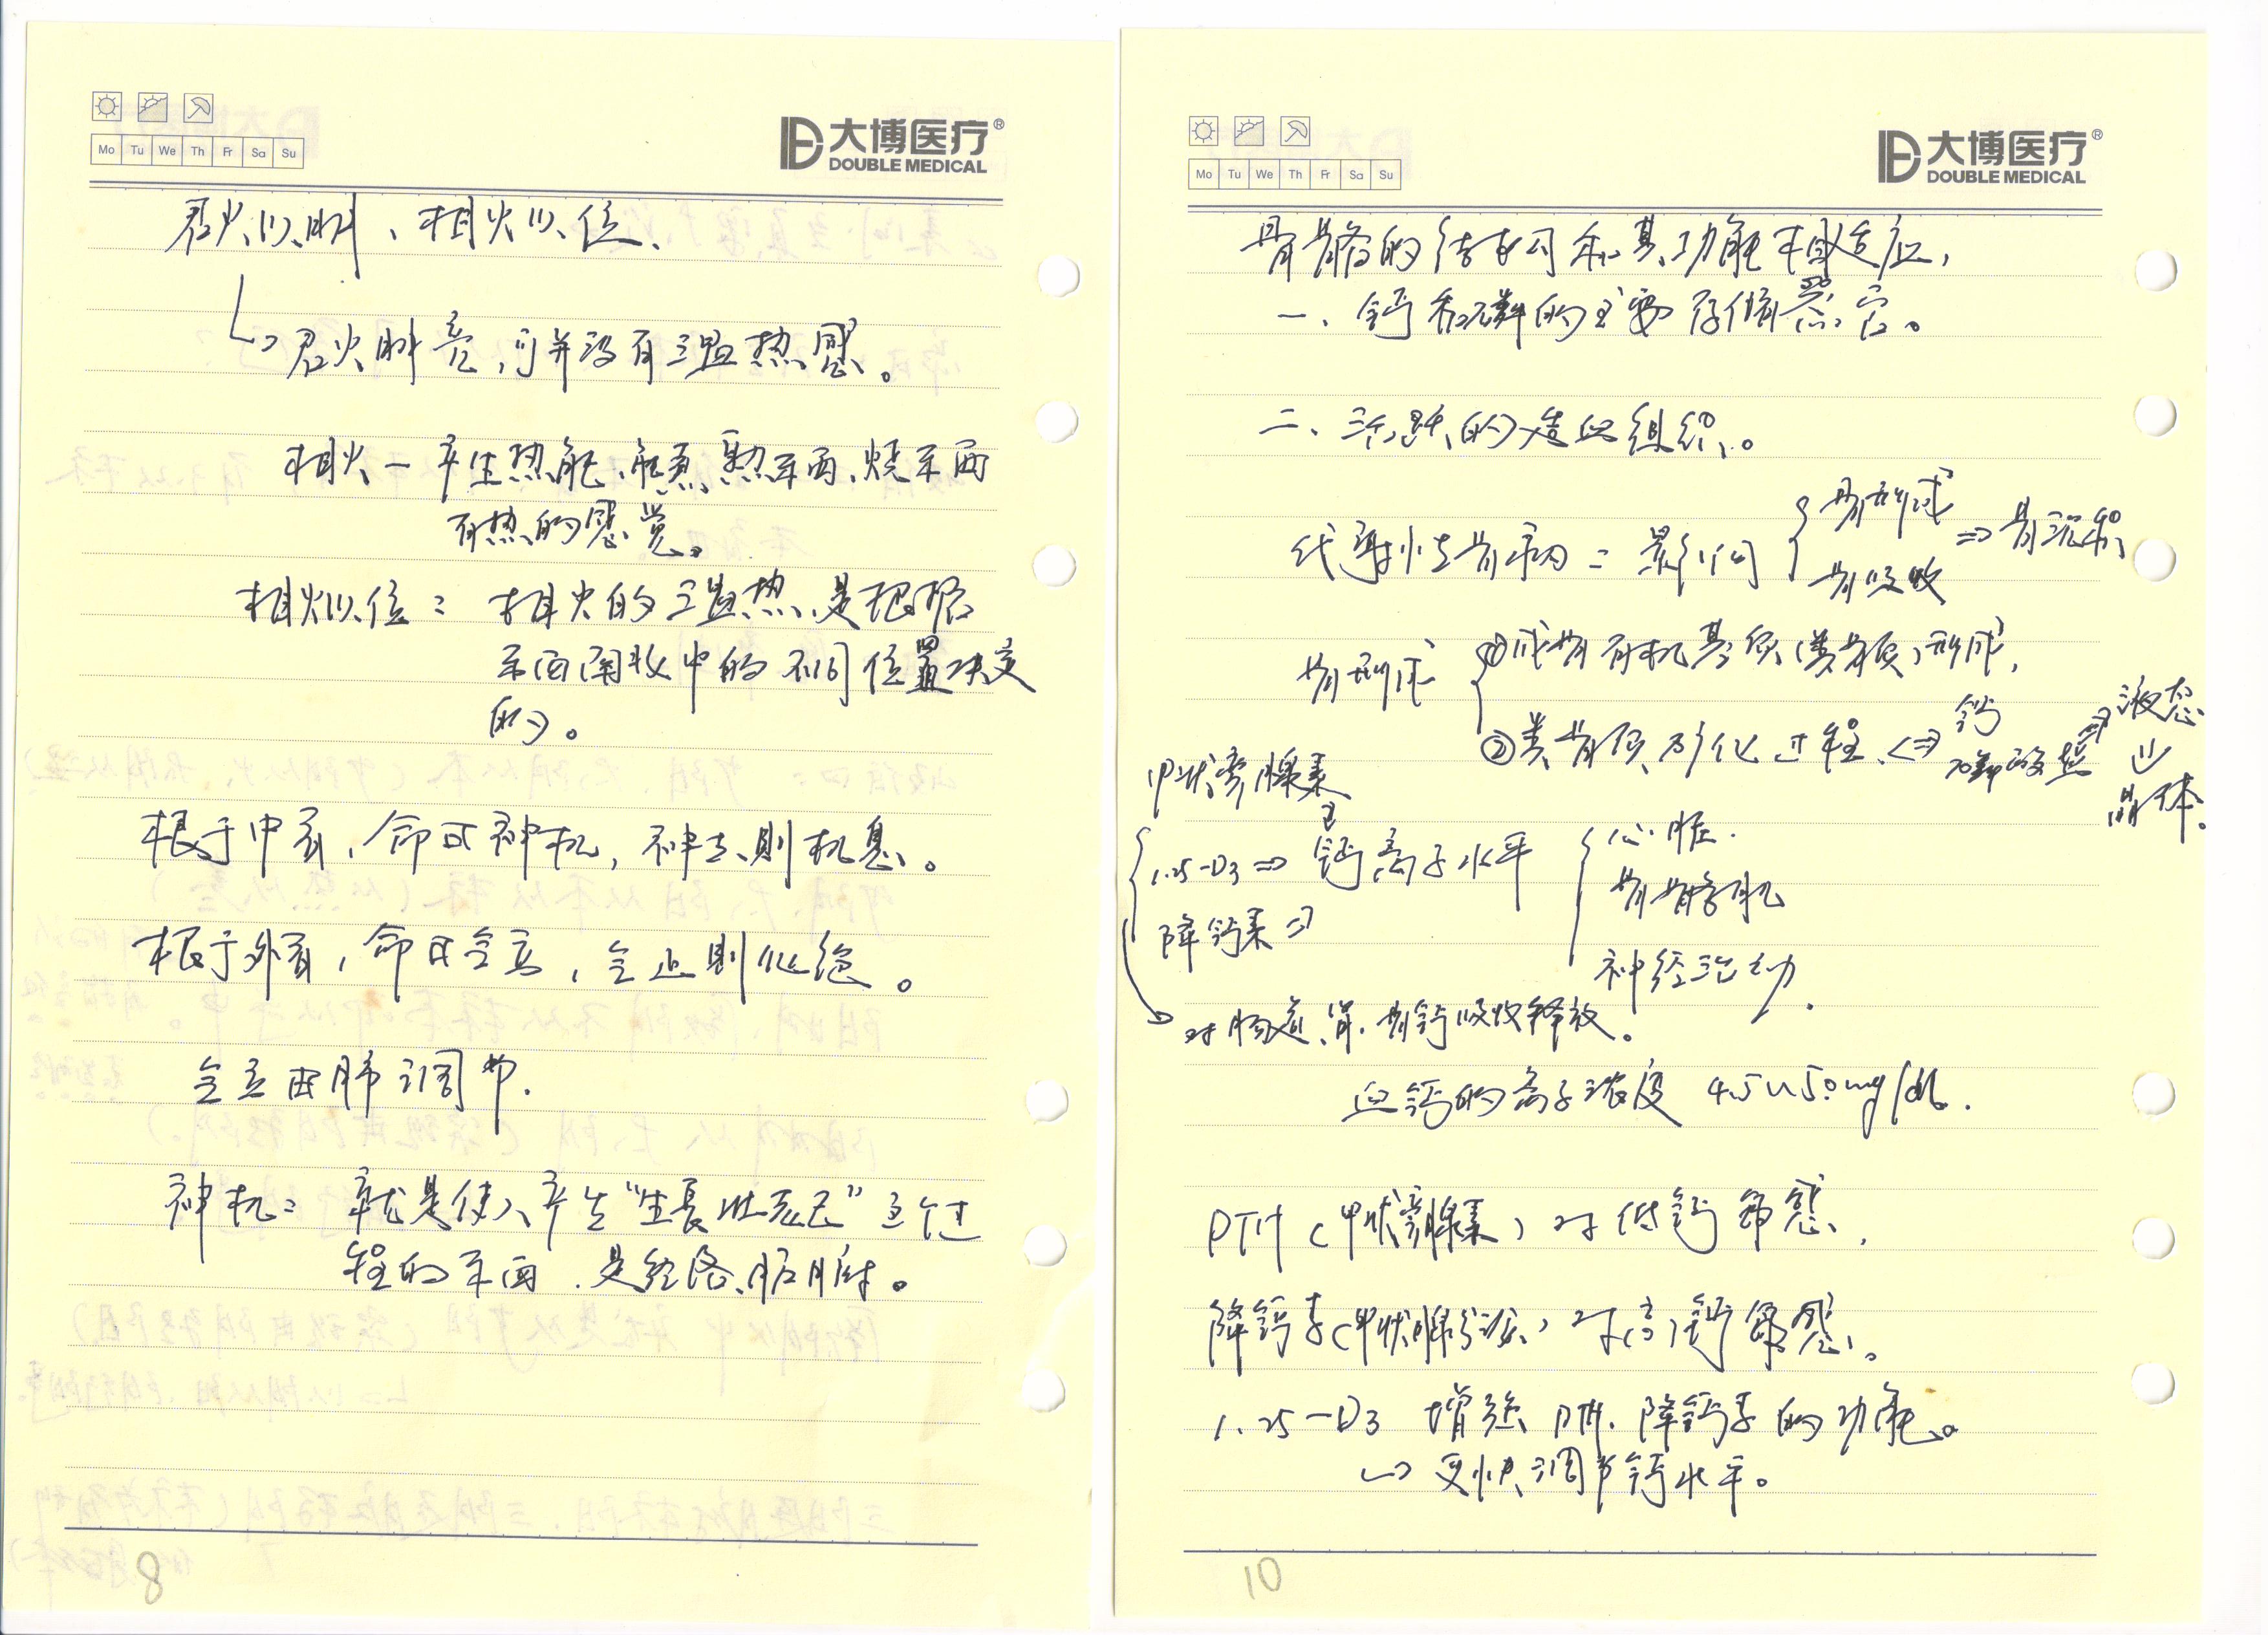 Mo Tu We Th Fr Sa Su
大博医疗®
DOUBLE MEDICAL
君火以明、相火以位、
↳ 君火明亮，可并没有温热感。
相火一产生热能、能煮熟东西、烧东西
有热的感觉。
相火以位：相火的温热、是根据
东西南北中的不同位置决定
的。
根于中者，命曰神机，神去则机息。
根于外者，命曰气立，气止则化绝。
气立由肺调节.
神机：就是使人产生“生長壮老已”这个过
程的东西．是经络、脏腑。
8
Mo Tu We Th Fr Sa Su
大博医疗®
DOUBLE MEDICAL
骨骼的结构和其功能相适应，
一、钙和磷的主要存储器官。
二、活跃的造血组织。
代谢性骨病：影响 { 骨形成 骨吸收 ⇒ 骨沉积
骨形成 { ①成骨有机基质（类骨质）形成，
②类骨质矿化过程 <=> 钙 磷酸盐 ⇒ 液态 ⇓ 晶体。
甲状旁腺素
1.25-D3 ⇒ 钙离子水平 { 心脏．
骨骼肌
降钙素 ⇒
神经活动．
→ 对肠道、肾、骨钙吸收释放。
血钙的离子浓度 4.5~5.0mg/dL．
PTH（甲状旁腺素）对低钙敏感，
降钙素（甲状腺分泌）对高钙敏感。
1.25-D3 增强 PTH．降钙素的功能。
↳ 更快调节钙水平。
10